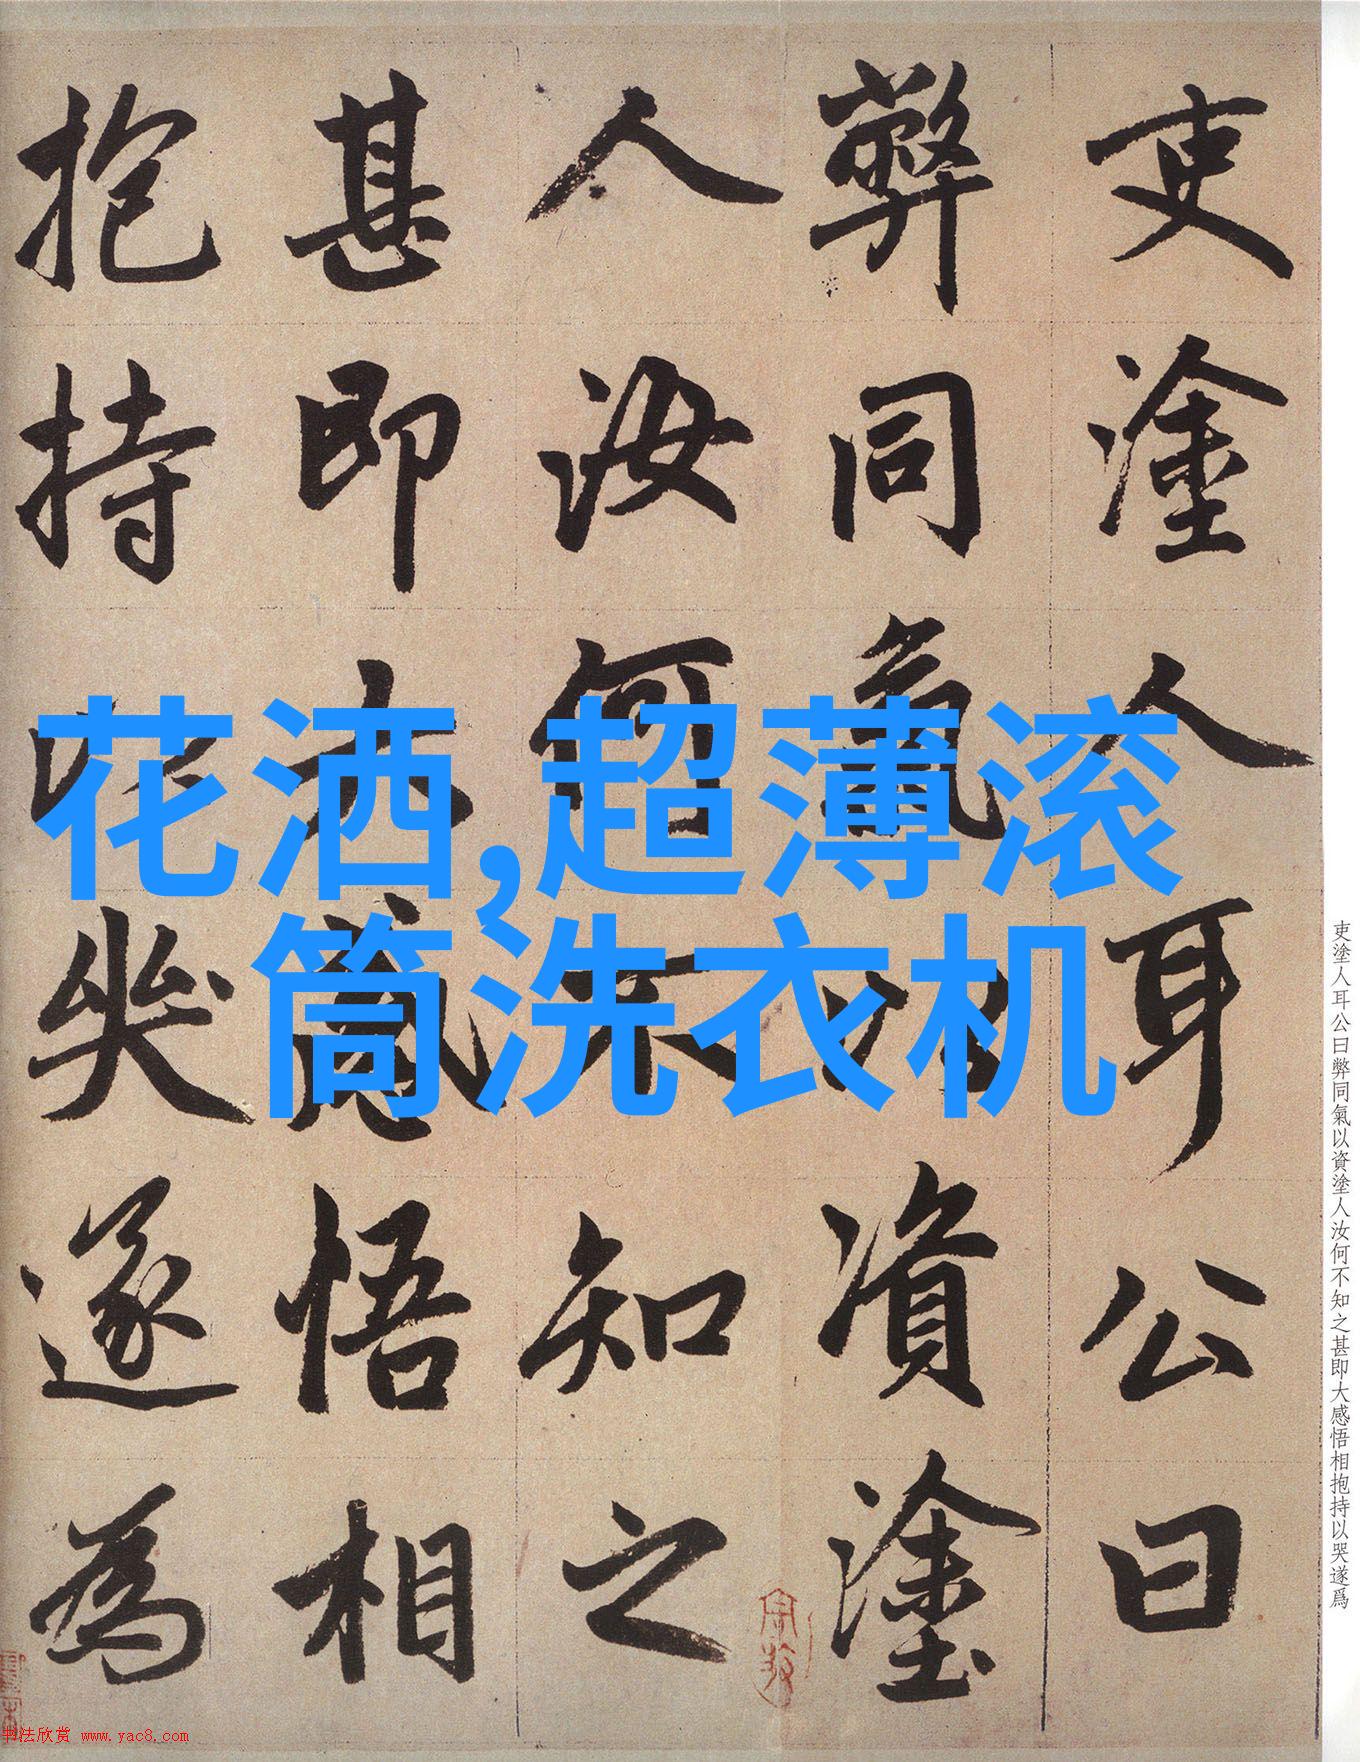 吏塗人耳公曰
弊同氣以資塗
人汝何不知之
甚即大感悟相
抱持以哭遂為
花洒,超薄滚
筒洗衣机
吏塗人耳公曰弊同氣以資塗人汝何不知之甚即大感悟相抱持以哭遂爲
书法欣赏 www.yac8.com